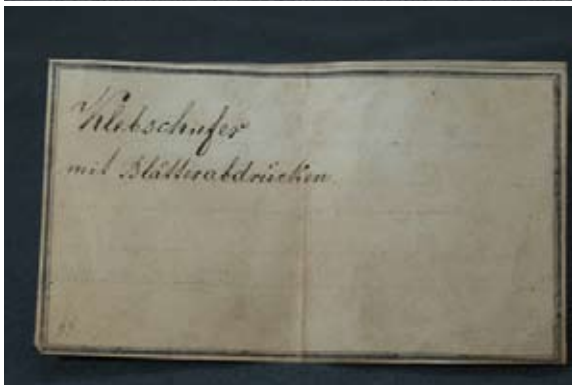 Klebschiefer
mit Blätterabdrücken.